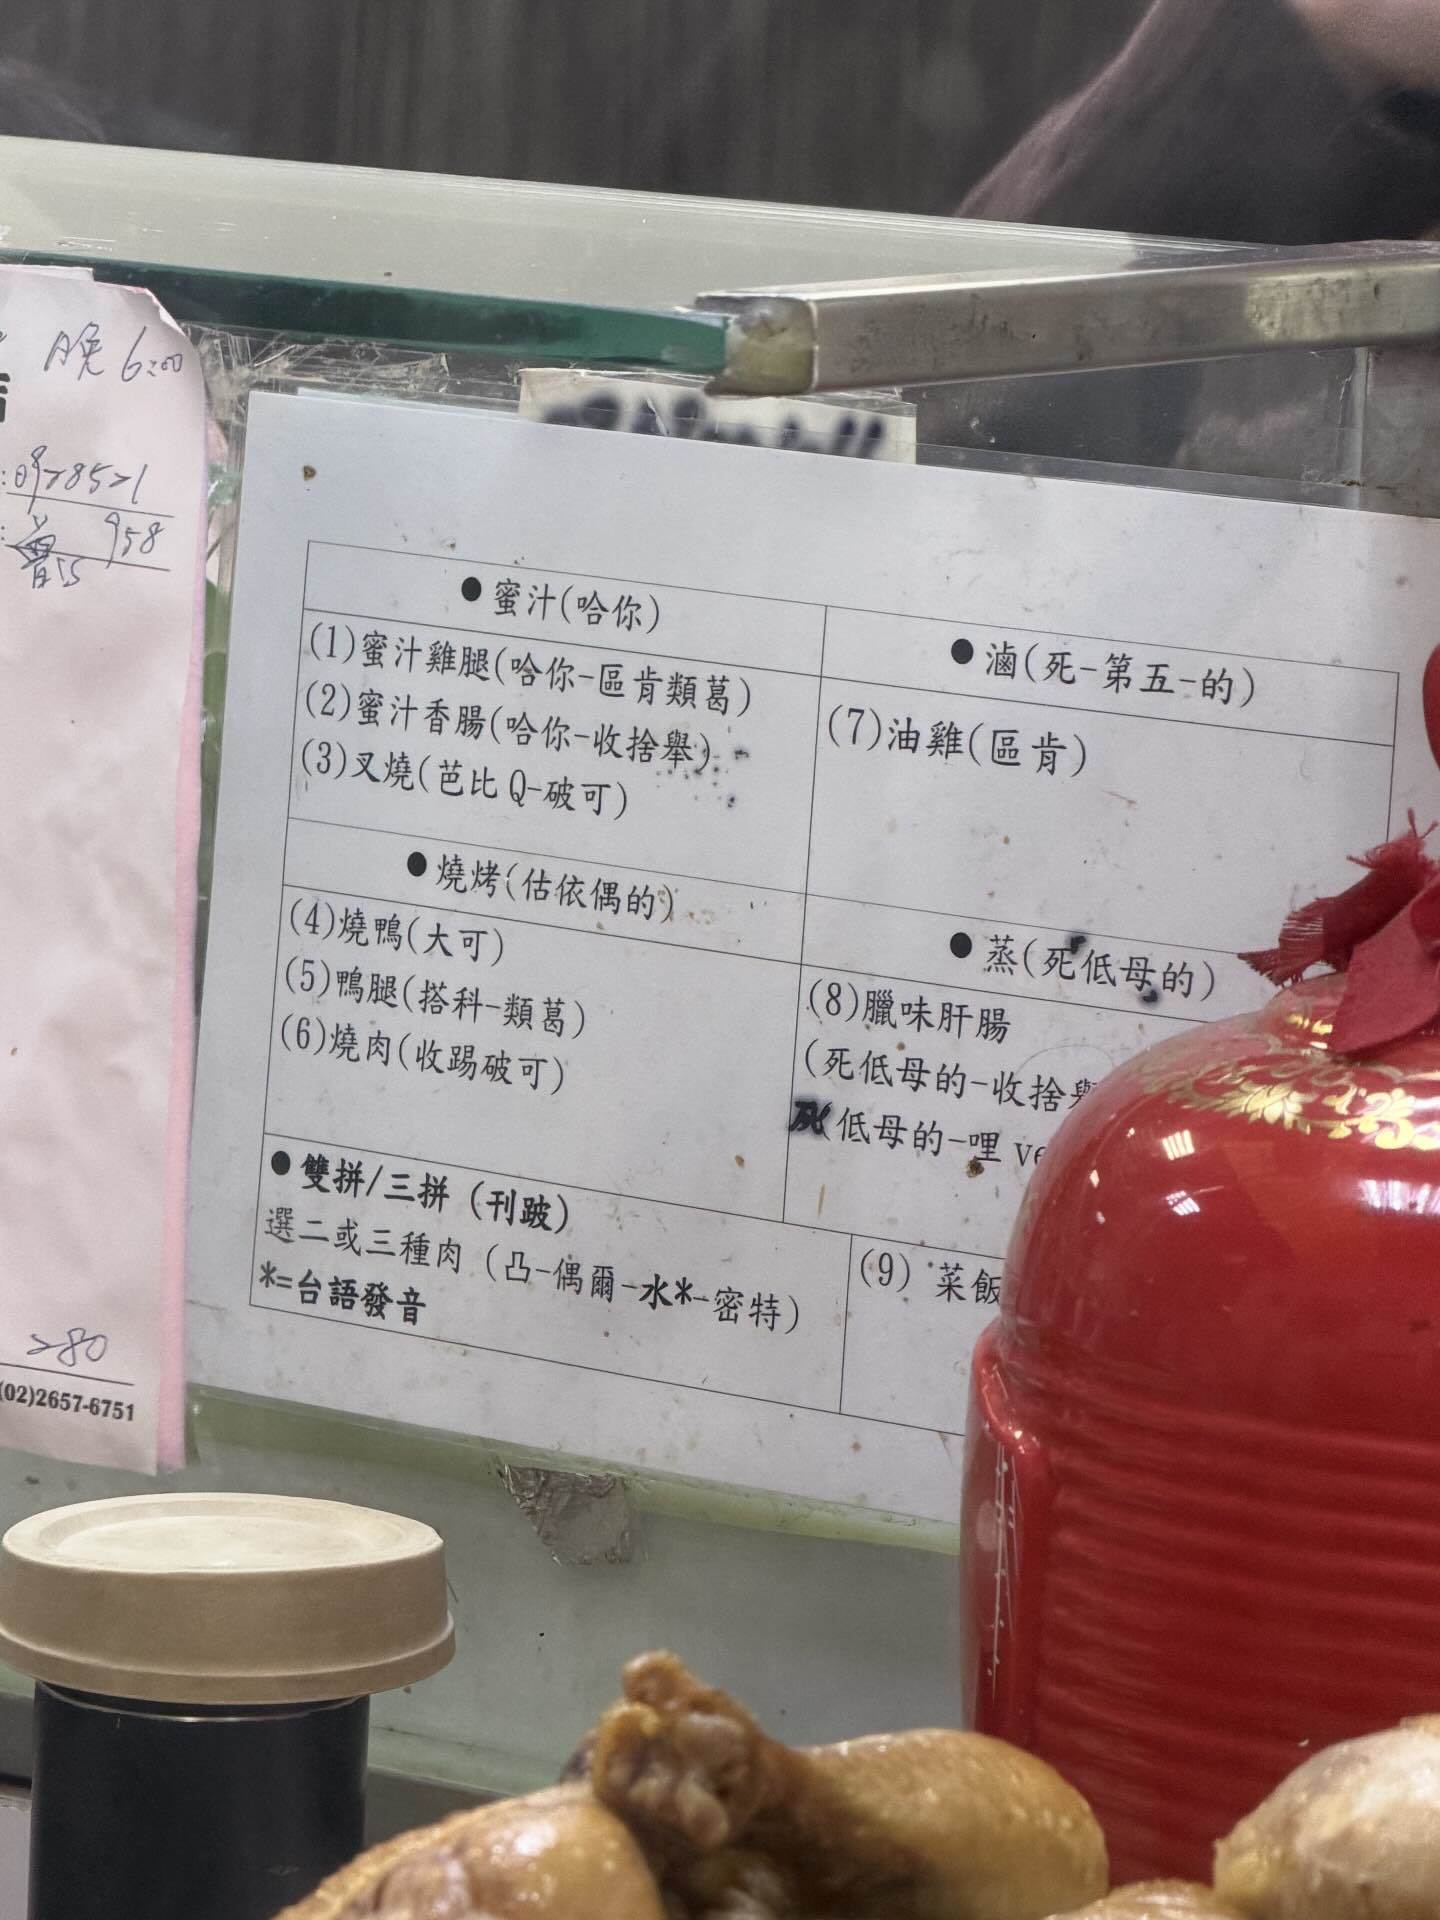 晚 6:00
958
280
(02)2657-6751
●蜜汁(哈你)
(1)蜜汁雞腿(哈你-區肯類葛)
(2)蜜汁香腸(哈你-收捨舉)
(3)叉燒(芭比Q-破可)
●燒烤(估依偶的)
(4)燒鴨(大可)
(5)鴨腿(搭科-類葛)
(6)燒肉(收踢破可)
●雙拼/三拼 (刊跛)
選二或三種肉 (凸-偶爾-水*-密特)
*=台語發音
●滷(死-第五-的)
(7)油雞(區肯)
●蒸(死低母的)
(8)臘味肝腸
(死低母的-收捨舉
死低母的-哩 ve
(9) 菜飯